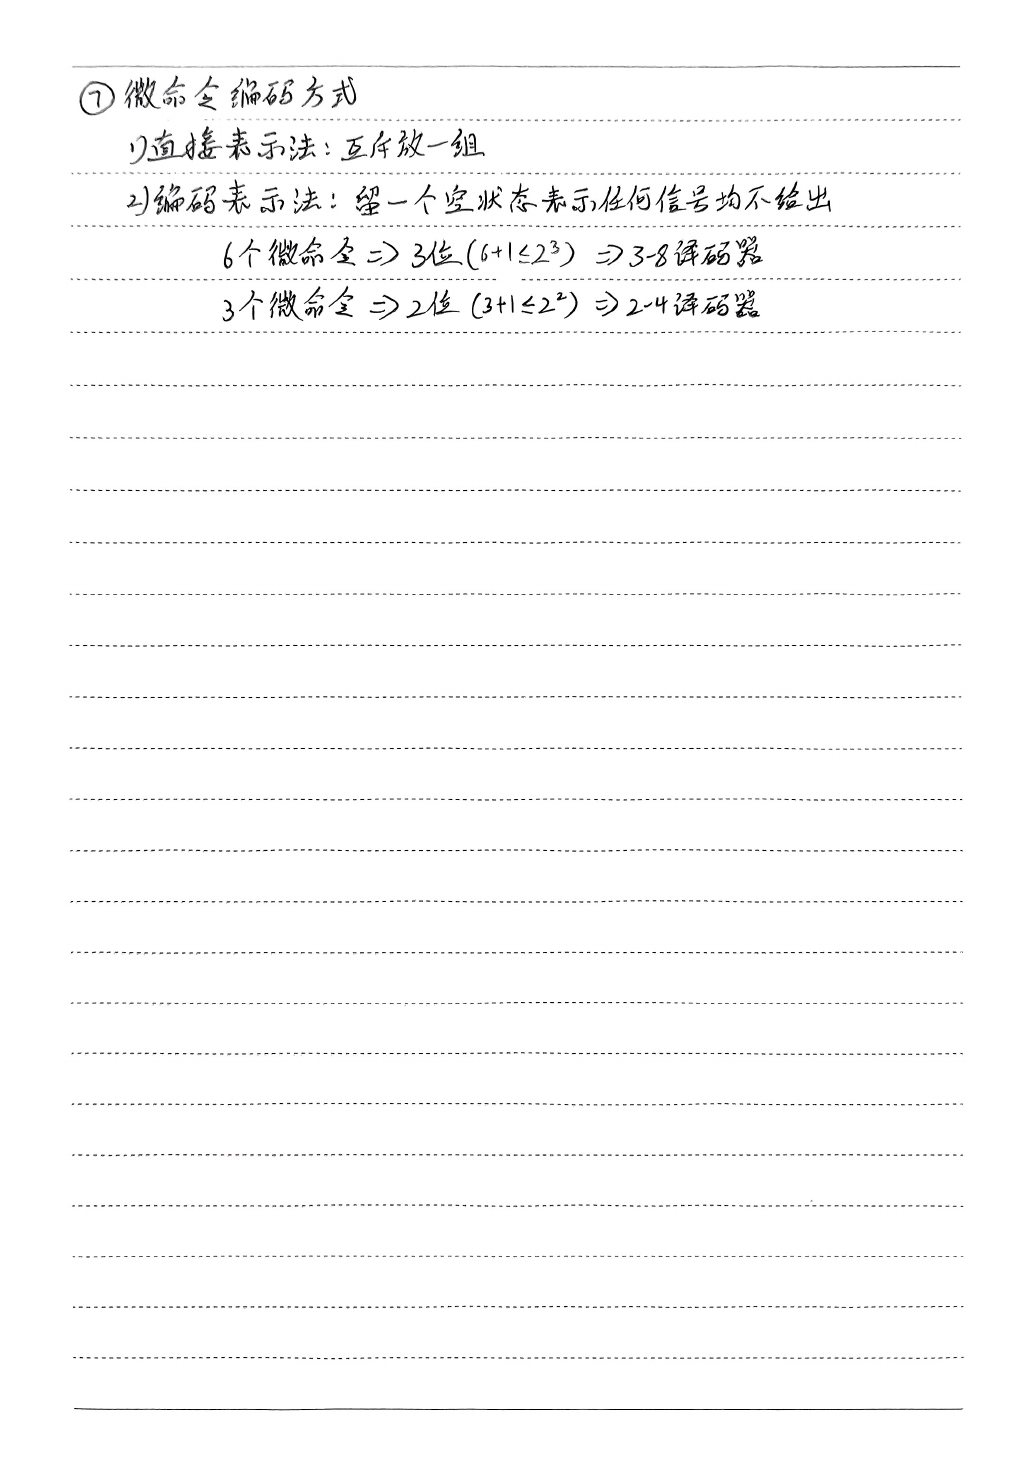 ⑦微命令编码方式
1)直接表示法：互斥放一组
2)编码表示法：留一个空状态表示任何信号均不给出
6个微命令=>3位(6+1≤2³) =>3-8译码器
3个微命令=>2位(3+1≤2²)=>2-4译码器